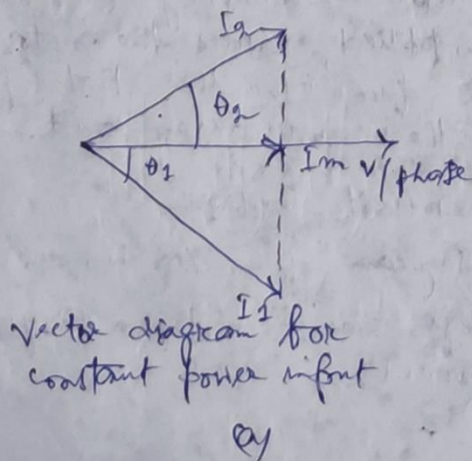 I2
θ2
θ1
Im V/phase
I1
Vector diagram for
constant power input